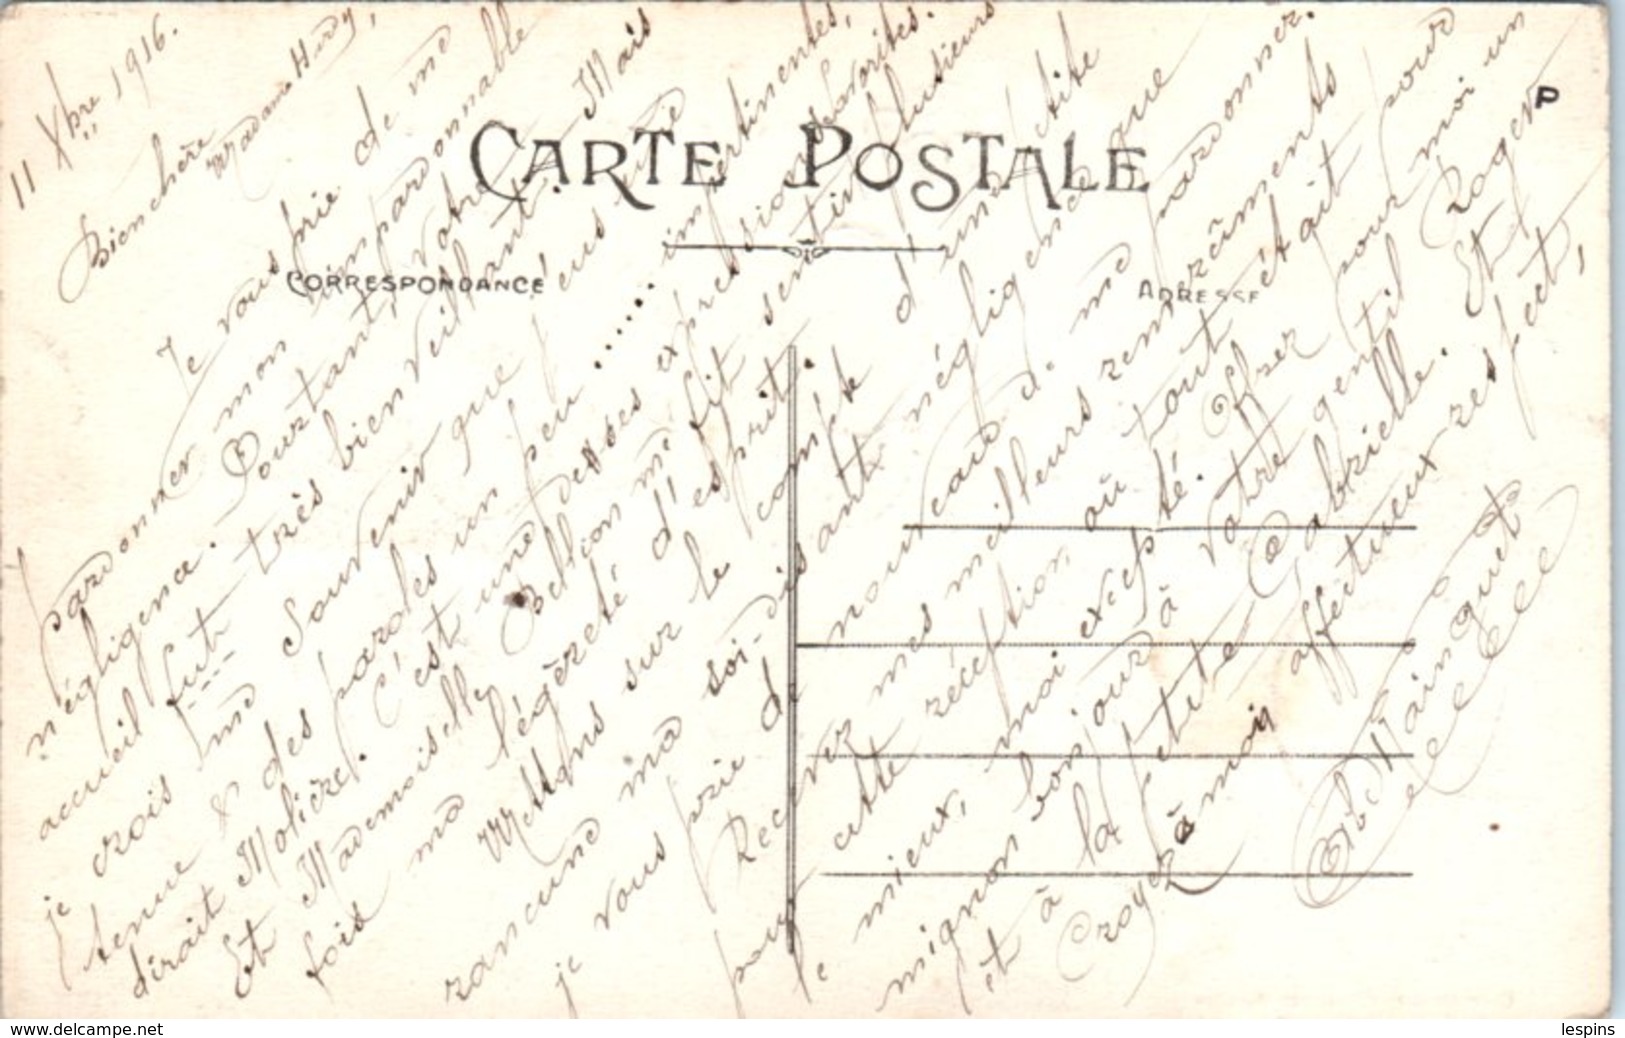 11 Xbre 1916.
Bien chère Madame Hardy,
Je vous prie de me
pardonner mon impardonnable
négligence. Pourtant, votre
accueil fut très bienveillant. Mais
je crois me souvenir que j'eus une
tenue & des paroles un peu ...... impertinentes,
dirait Molière. C'est une de ses expressions favorites.
Et Mademoiselle Bellion me fit sentir plusieurs
fois ma légèreté d'esprit.
Mettons sur le compte d'une petite
rancune ma soi-disant négligence que
je vous prie de nouveau de me pardonner.
Recevez mes meilleurs remercîments
pour cette réception où tout était pour
le mieux, moi excepté. Offrez pour moi un
mignon bonjour à votre gentil Roger
et à la petite Gabrielle. Et
croyez à mon affectueux respect,
Mainguet
CARTE POSTALE
CORRESPONDANCE
ADRESSE
P
www.delcampe.net
lespins